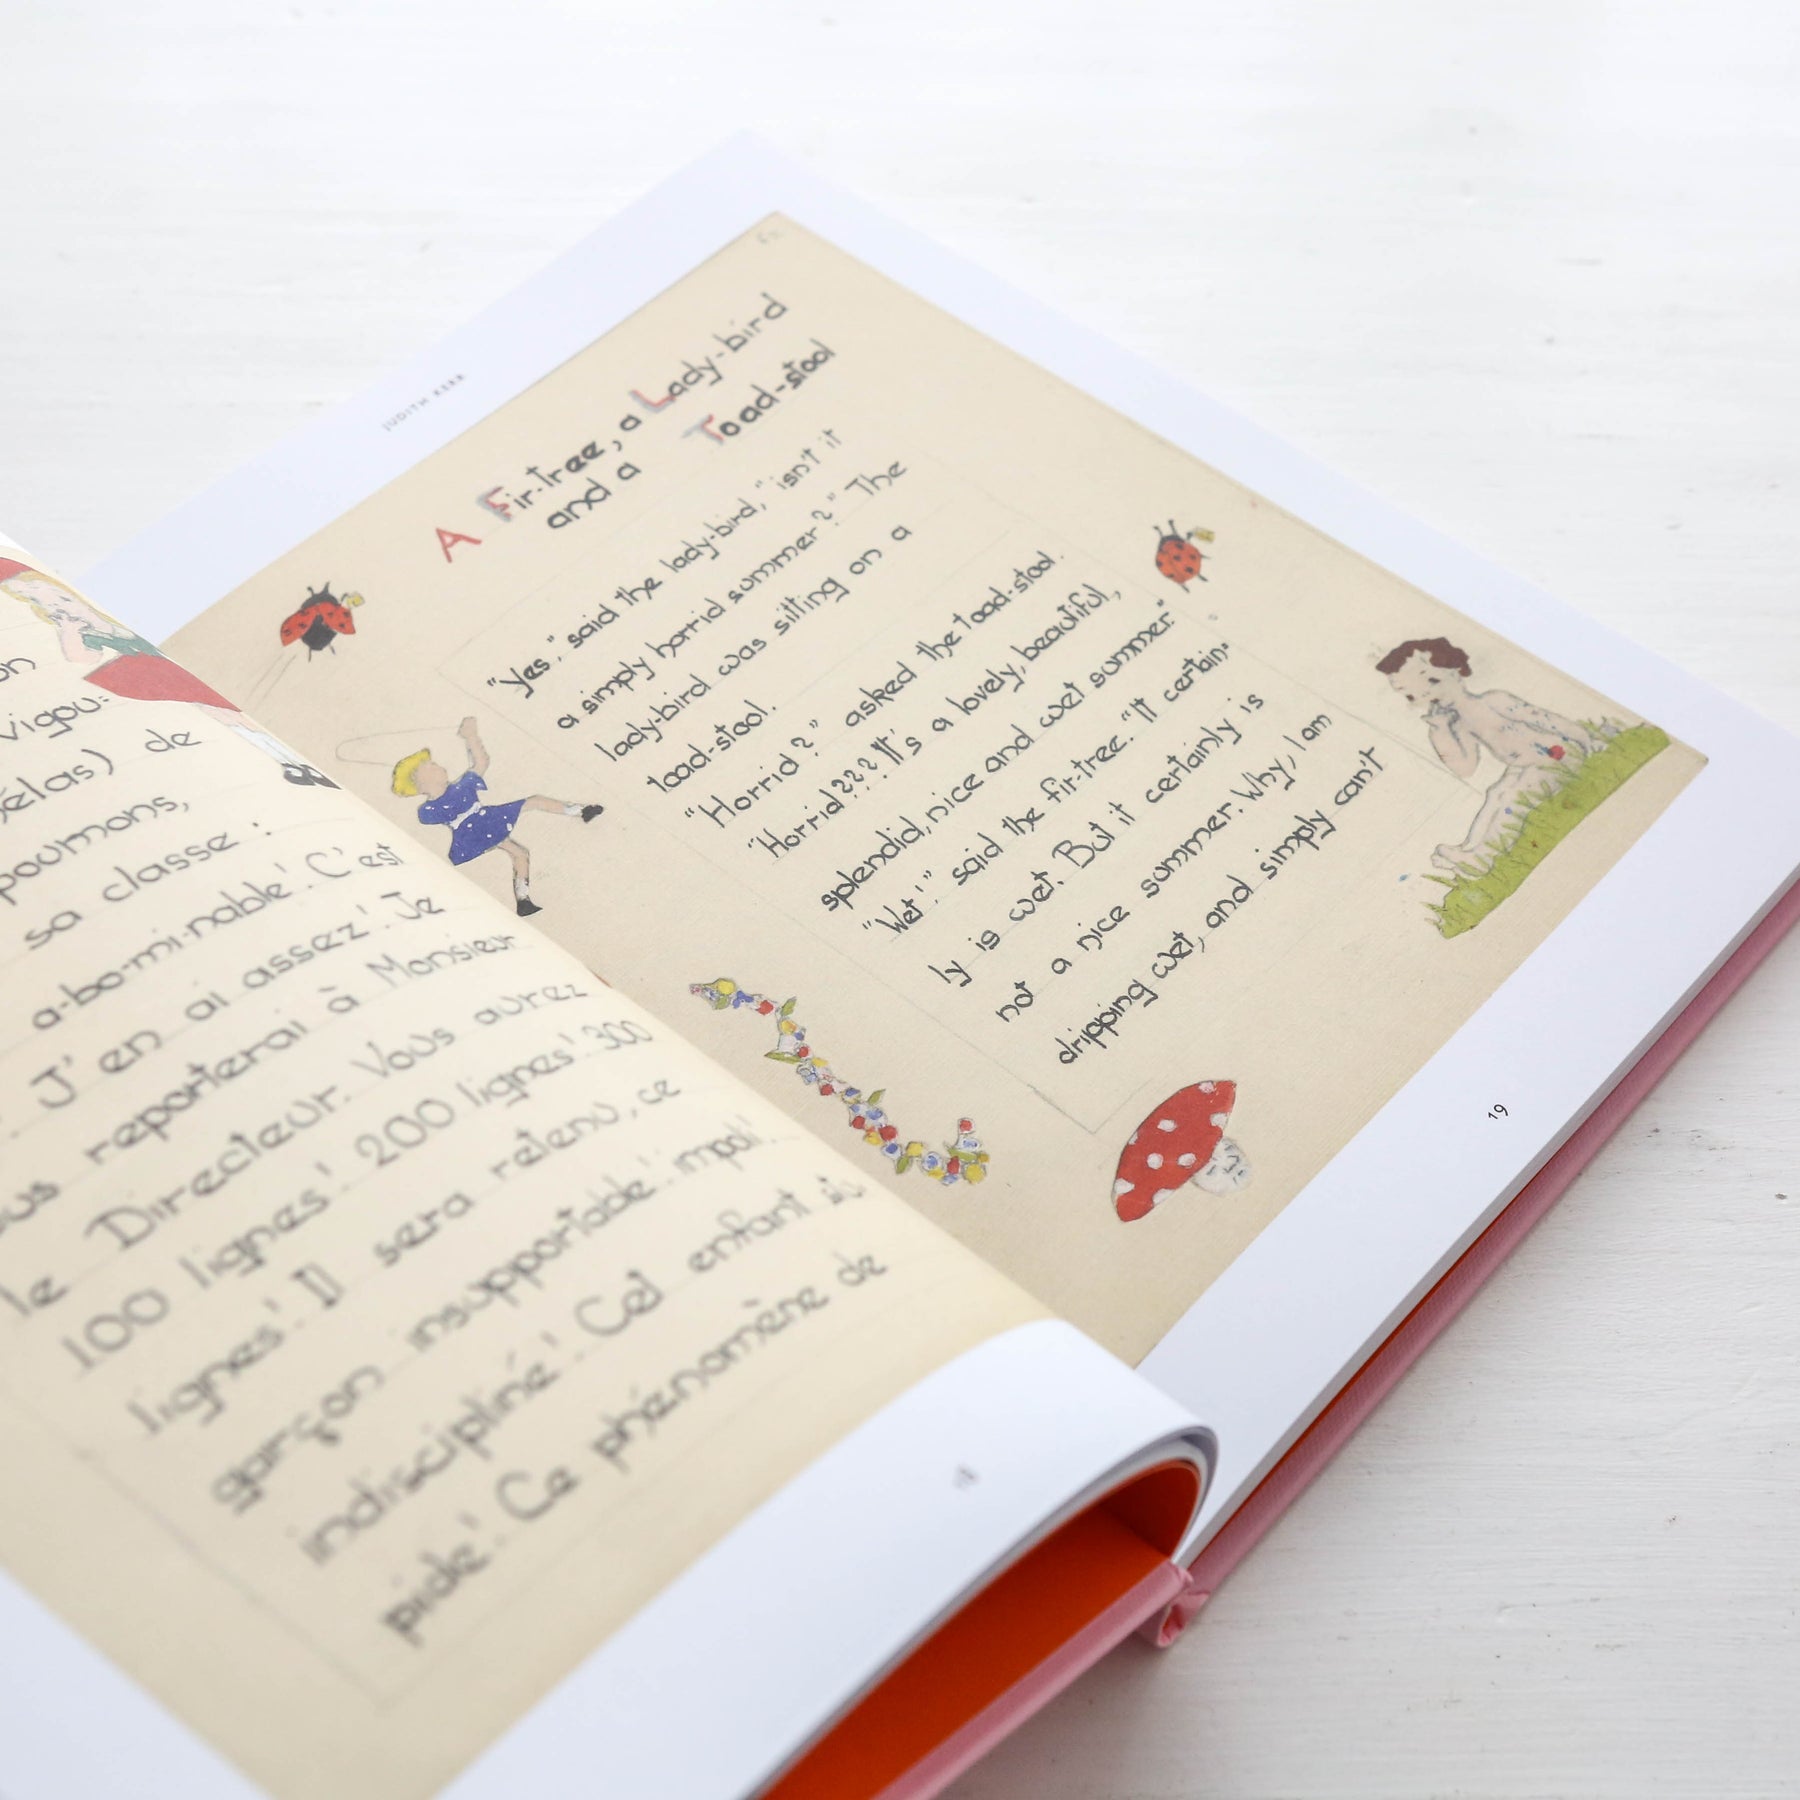 on
vigou:
élas) de
poumons,
sa classe :
a-bo-mi-nable! C'est
J'en ai assez! Je
reporterai à Monsieur
le Directeur. Vous aurez
100 lignes! 200 lignes! 300
lignes! Il sera retenu, ce
garçon insupportable! impoli!
indiscipliné! Cet enfant stu
pide! Ce phénomène de
18
JUDITH KERR
A Fir-tree, a Lady-bird
and a Toad-stool
"Yes," said the lady-bird, "isn't it
a simply horrid summer?" The
lady-bird was sitting on a
toad-stool.
"Horrid?" asked the toad-stool.
"Horrid??? It's a lovely, beautiful,
splendid, nice and wet summer."
"Wet!" said the fir-tree. "It certain-
ly is wet. But it certainly is
not a nice summer. Why, I am
dripping wet, and simply can't
19